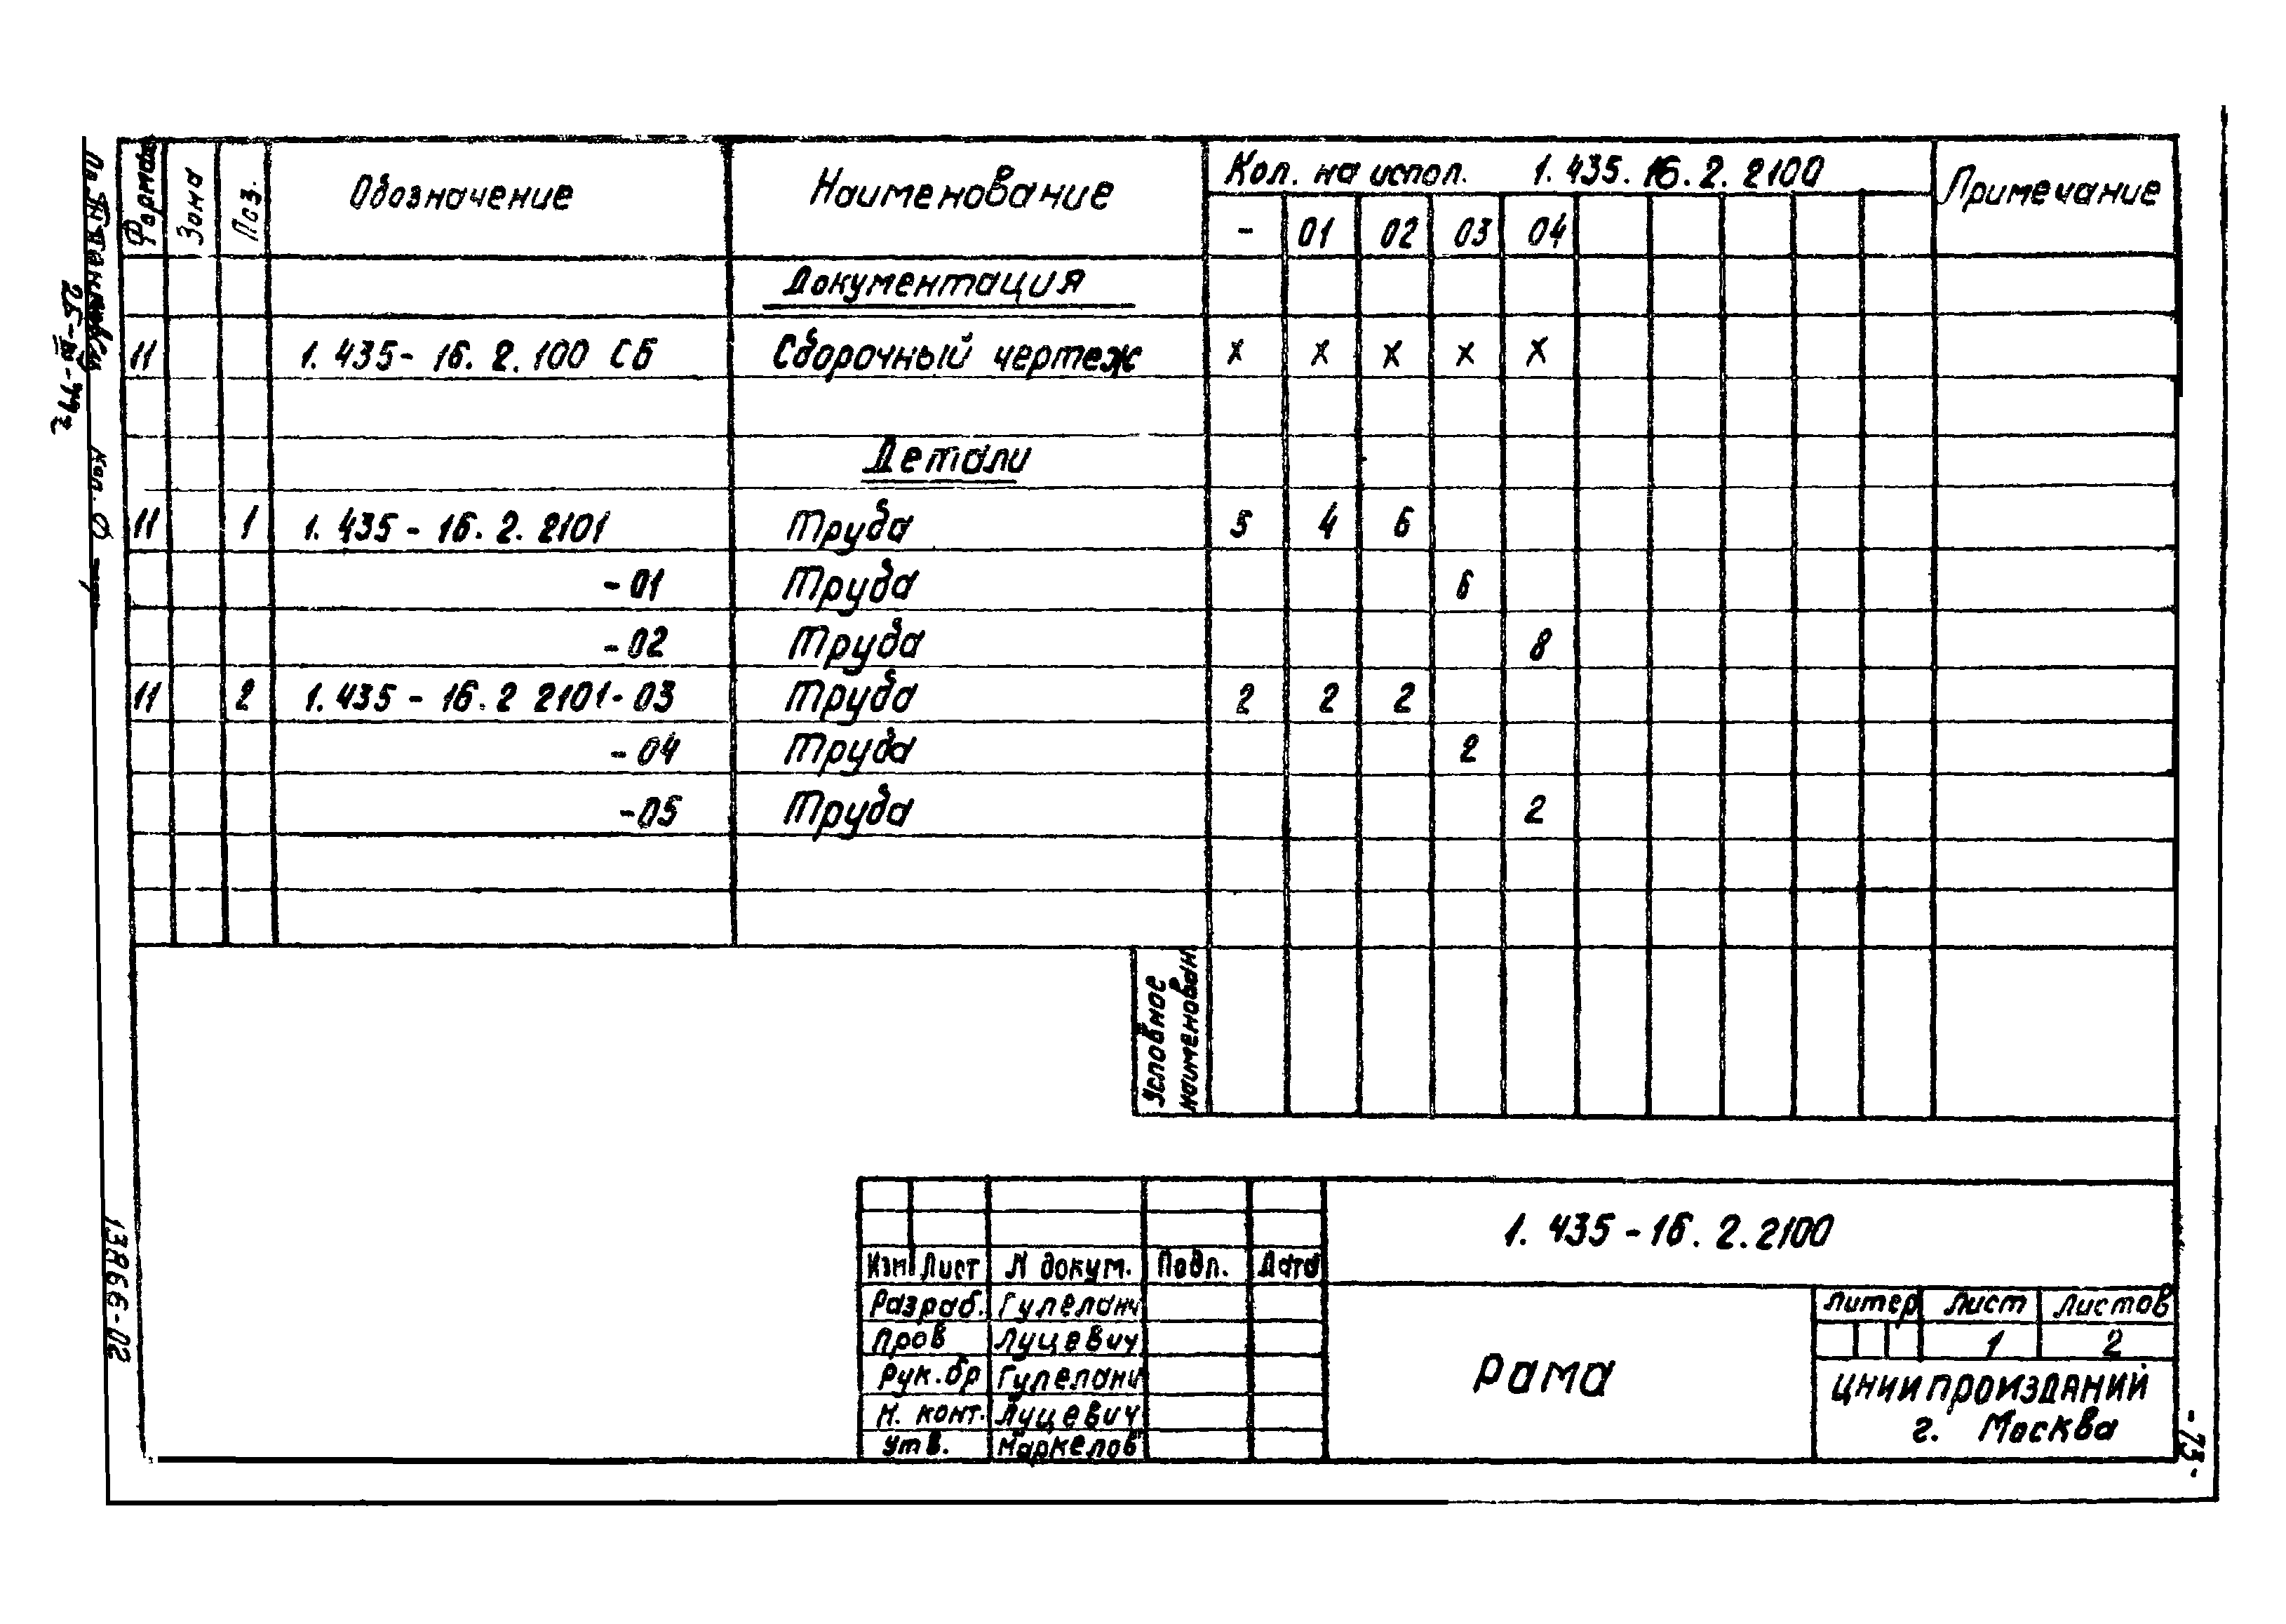 Формат Зона Поз. Обозначение Наименование Кол. на испол. 1.435.16.2.2100 Примечание
- 01 02 03 04
Документация
11 1.435-16.2.100 СБ Сборочный чертеж х х х х х
Детали
11 1 1.435-16.2.2101 Труба 5 4 6
-01 Труба 6
-02 Труба 8
11 2 1.435-16.2 2101-03 Труба 2 2 2
-04 Труба 2
-05 Труба 2
Условное
наименован
1.435-16.2.2100
Изм Лист N докум. Подп. Дата
Разраб. Гулелани
Пров Луцевич
Рук.бр Гулелани
Н. конт. Луцевич
Утв. Маркелов
Рама
Литер Лист Листов
1 2
ЦНИИПРОИЗДАНИЙ
г. Москва
13866-02
-73-